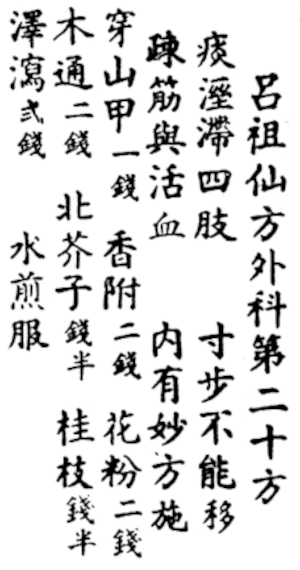 呂祖仙方外科第二十方
痰溼滯四肢 寸步不能移
疎筋與活血 内有妙方施
穿山甲一錢 香附二錢 花粉二錢
木通二錢 北芥子錢半 桂枝錢半
澤瀉弍錢 水煎服